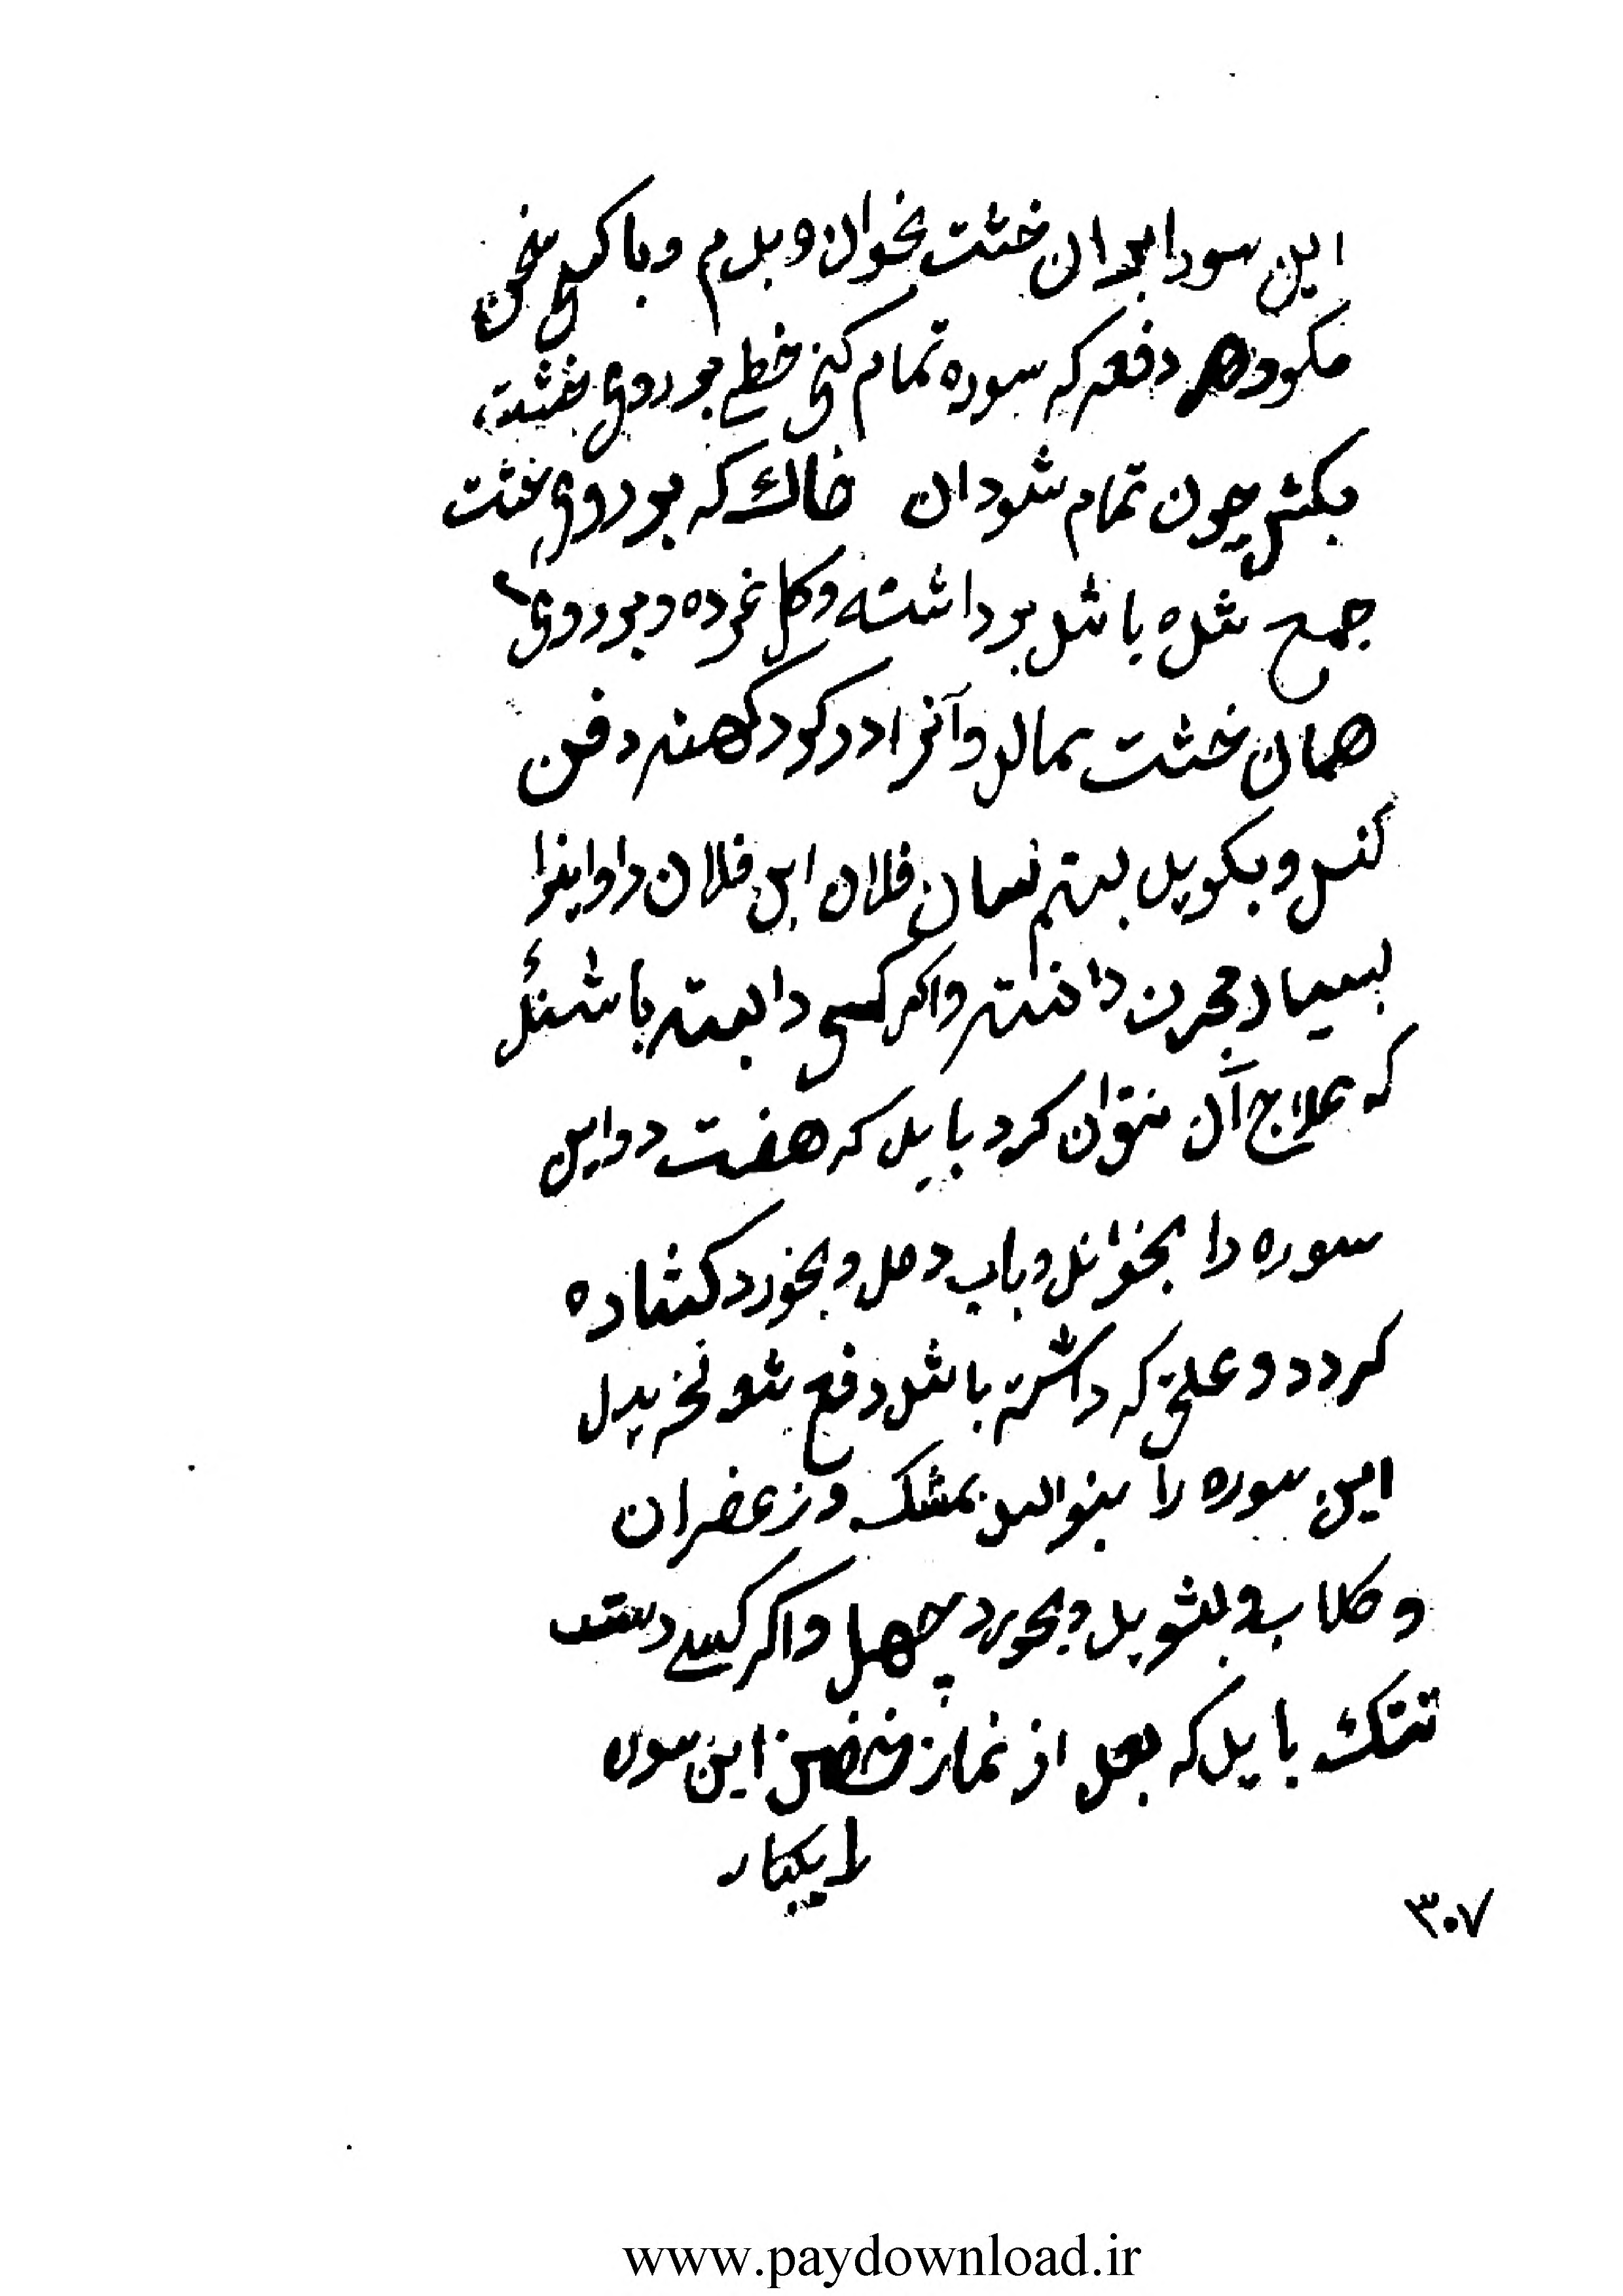 این سورا بران خشت بخوان و بدم و باکسی سخن
مکو و هر دفعه که سوره تمام کنی خطی بر روی خشت
بکش چون تمام شود ان خاک که بر روی خشت
جمع شده باشد برداشته و کل نموده و بر روی
همان خشت بمالد و آنرا در کور کهنه دفن
کنند و بکوید بستم لسان فلان ابن فلان را و اینرا
بسیار مجرب دانسته و اکر کسی را بسته باشند
که علاج آن نتوان کرد باید که هفت روز این
سوره را بخواند و باب دمد و بخورد کشاده
کردد و علتی که داشته باشد دفع شود
این سوره را بنویسد بمشک و زعفران
و کلاب و بشوید و بخورد چهل و اکر کسی دست
تنک باید که بعد از نماز این سوره
را یکبار
۳۰۷
www.paydownload.ir